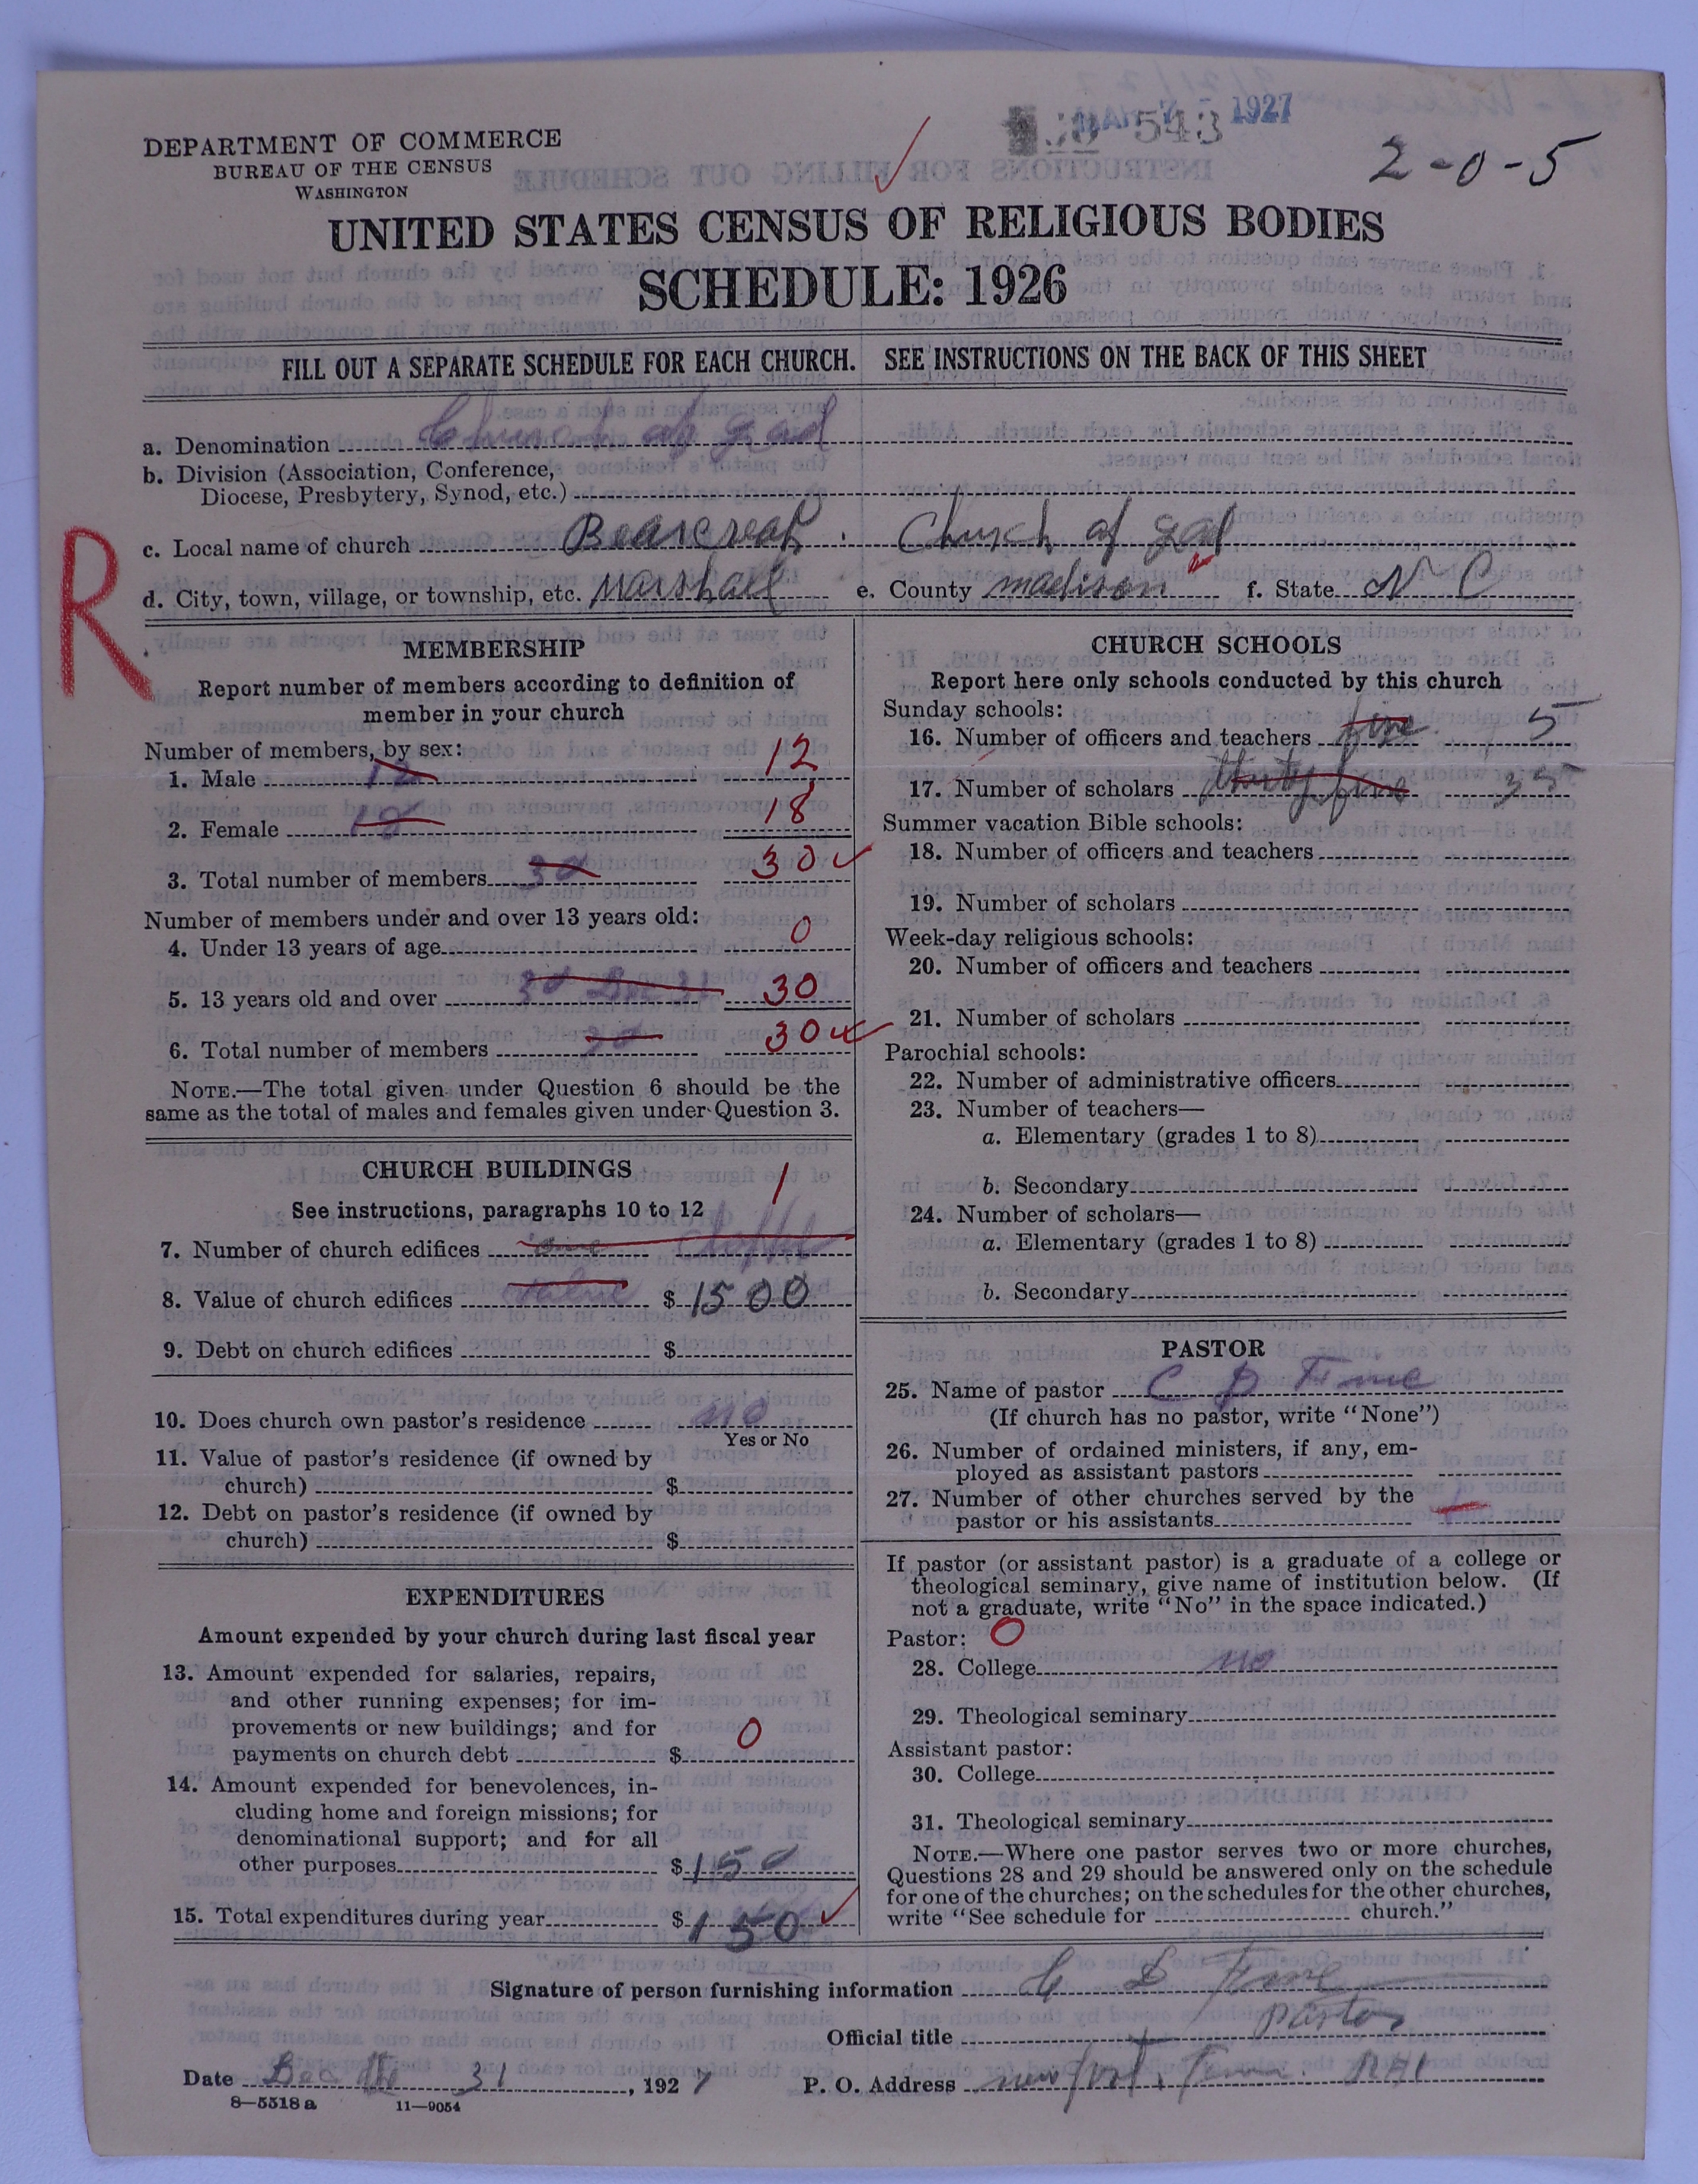 MAR 7 - 1927
543
2-0-5
DEPARTMENT OF COMMERCE
BUREAU OF THE CENSUS
WASHINGTON
UNITED STATES CENSUS OF RELIGIOUS BODIES
SCHEDULE: 1926
FILL OUT A SEPARATE SCHEDULE FOR EACH CHURCH. SEE INSTRUCTIONS ON THE BACK OF THIS SHEET
a. Denomination Church of God
b. Division (Association, Conference,
Diocese, Presbytery, Synod, etc.)
c. Local name of church Bearcreak. Church of God
d. City, town, village, or township, etc. Marshall e. County madison f. State N C
R
MEMBERSHIP
Report number of members according to definition of
member in your church
Number of members, by sex:
1. Male 12 12
2. Female 18 18
3. Total number of members 30 30
Number of members under and over 13 years old:
4. Under 13 years of age 0
5. 13 years old and over 30 Dec 31 30
6. Total number of members 30 30
NOTE.—The total given under Question 6 should be the
same as the total of males and females given under Question 3.
CHURCH BUILDINGS
See instructions, paragraphs 10 to 12
1
7. Number of church edifices one
8. Value of church edifices value $ 1500
9. Debt on church edifices $
10. Does church own pastor's residence no
Yes or No
11. Value of pastor's residence (if owned by
church) $
12. Debt on pastor's residence (if owned by
church) $
EXPENDITURES
Amount expended by your church during last fiscal year
13. Amount expended for salaries, repairs,
and other running expenses; for im-
provements or new buildings; and for
payments on church debt $ 0
14. Amount expended for benevolences, in-
cluding home and foreign missions; for
denominational support; and for all
other purposes $ 150
15. Total expenditures during year $ 150
CHURCH SCHOOLS
Report here only schools conducted by this church
Sunday schools:
16. Number of officers and teachers five 5
17. Number of scholars thirty five 35
Summer vacation Bible schools:
18. Number of officers and teachers
19. Number of scholars
Week-day religious schools:
20. Number of officers and teachers
21. Number of scholars
Parochial schools:
22. Number of administrative officers
23. Number of teachers—
a. Elementary (grades 1 to 8)
b. Secondary
24. Number of scholars—
a. Elementary (grades 1 to 8)
b. Secondary
PASTOR
25. Name of pastor C D Fine
(If church has no pastor, write "None")
26. Number of ordained ministers, if any, em-
ployed as assistant pastors
27. Number of other churches served by the
pastor or his assistants
If pastor (or assistant pastor) is a graduate of a college or
theological seminary, give name of institution below. (If
not a graduate, write "No" in the space indicated.)
Pastor: 0
28. College no
29. Theological seminary
Assistant pastor:
30. College
31. Theological seminary
NOTE.—Where one pastor serves two or more churches,
Questions 28 and 29 should be answered only on the schedule
for one of the churches; on the schedules for the other churches,
write "See schedule for church."
Signature of person furnishing information C D Fine
Official title pastor
Date Dec 31, 1927 P. O. Address newport, Tenn. R#1
8—5518 a 11—9054